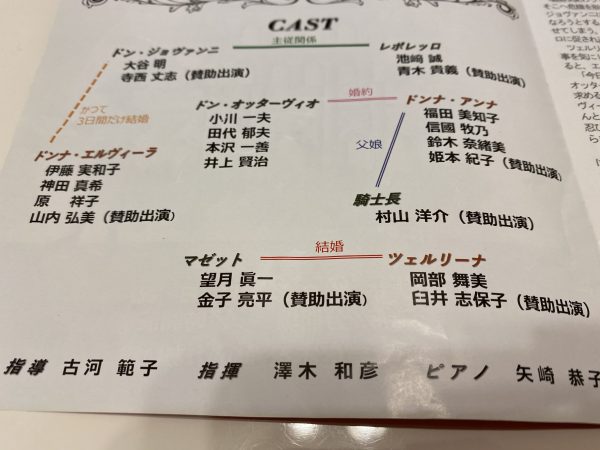 CAST
主従関係
ドン・ジョヴァンニ
大谷 明
寺西 丈志（賛助出演）
レポレッロ
池崎 誠
青木 貴義（賛助出演）
かつて
3日間だけ結婚
ドン・オッターヴィオ
小川 一夫
田代 郁夫
本沢 一善
井上 賢治
婚約
ドンナ・アンナ
福田 美知子
信國 牧乃
鈴木 奈緒美
姫本 紀子（賛助出演）
父娘
ドンナ・エルヴィーラ
伊藤 実和子
神田 真希
原 祥子
山内 弘美（賛助出演）
騎士長
村山 洋介（賛助出演）
マゼット
望月 眞一
金子 亮平（賛助出演）
結婚
ツェルリーナ
岡部 舞美
臼井 志保子（賛助出演）
指導 古河 範子 指揮 澤木 和彦 ピアノ 矢崎 恭子